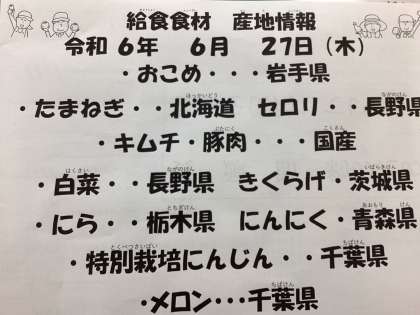 給食食材　産地情報
令和 6年　6月　27日（木）
・おこめ・・・岩手県
・たまねぎ・・北海道　セロリ・・長野県
・キムチ・豚肉・・・国産
・白菜・・長野県　きくらげ・茨城県
・にら・・栃木県　にんにく・青森県
・特別栽培にんじん・・千葉県
・メロン・・・千葉県